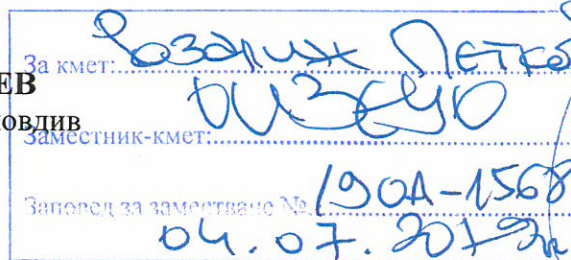 За кмет: Розалин Петков
ЕВ
ОИЗСУО
ловдив
Заместник-кмет:
Заповед за заместване № 19ОА-1568
04.07.2019г.